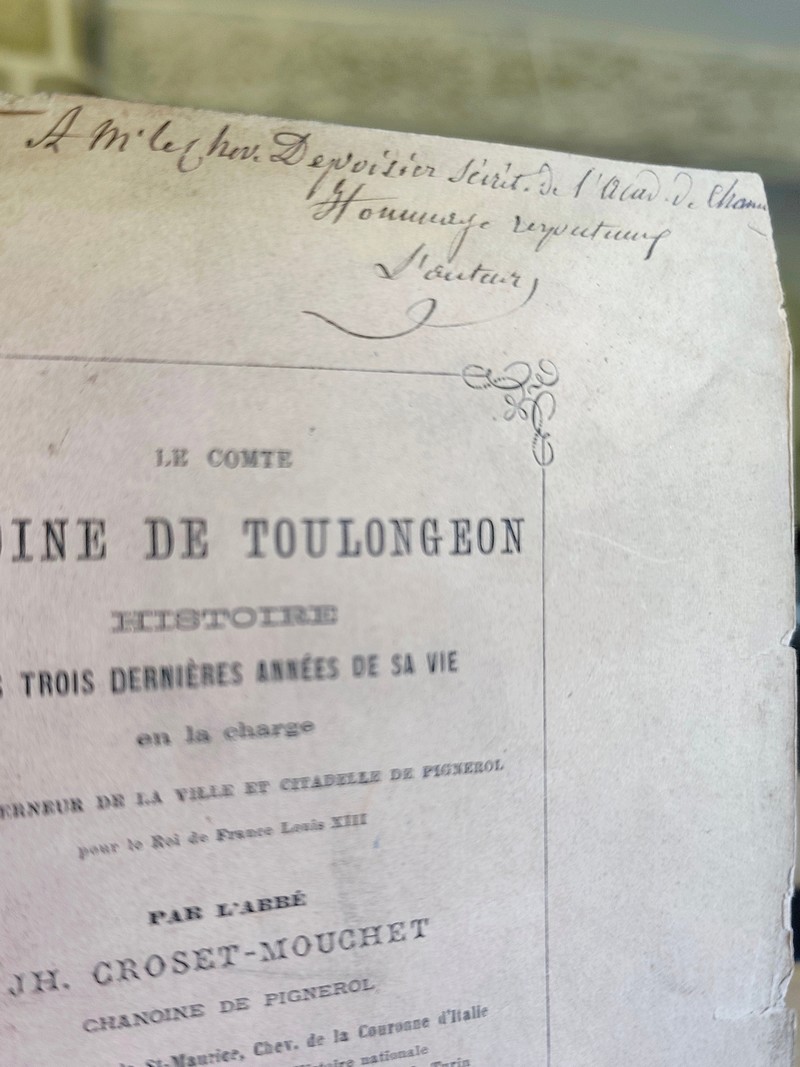 A Mr le Chev. Depoisier Sécrét. de l'Acad. de Cham
Hommage respectueux
L'auteur
LE COMTE
OINE DE TOULONGEON
HISTOIRE
S TROIS DERNIÈRES ANNÉES DE SA VIE
en la charge
ERNEUR DE LA VILLE ET CITADELLE DE PIGNEROL
pour le Roi de France Louis XIII
PAR L'ABBÉ
JH. CROSET-MOUCHET
CHANOINE DE PIGNEROL
St-Maurice, Chev. de la Couronne d'Italie
nationale
Turin